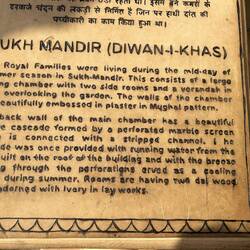 दरवाजे चंदन की लकड़ी से निर्मित हैं जिन पर हाथी दांत की
पच्चीकारी का काम किया हुआ था।
UKH MANDIR (DIWAN-I-KHAS)
Royal Families were living during the mid-day of
mer season in Sukh-Mandir. This consists of a large
ng chamber with two side rooms and a verandah in
overlooking the garden. The walls of the chamber
eautifully embossed in plaster in Mughal pattern.
back wall of the main chamber has a beautiful
te cascade formed by a perforated marble screen
is connected with a stripped channel. I he
ade was once provided with running water from the
uilt on the roof of the building and with the breeze
ng through the perforations erved as a cooling
during summer. Rooms are having two dal wood
adorned with Ivory in lay works.